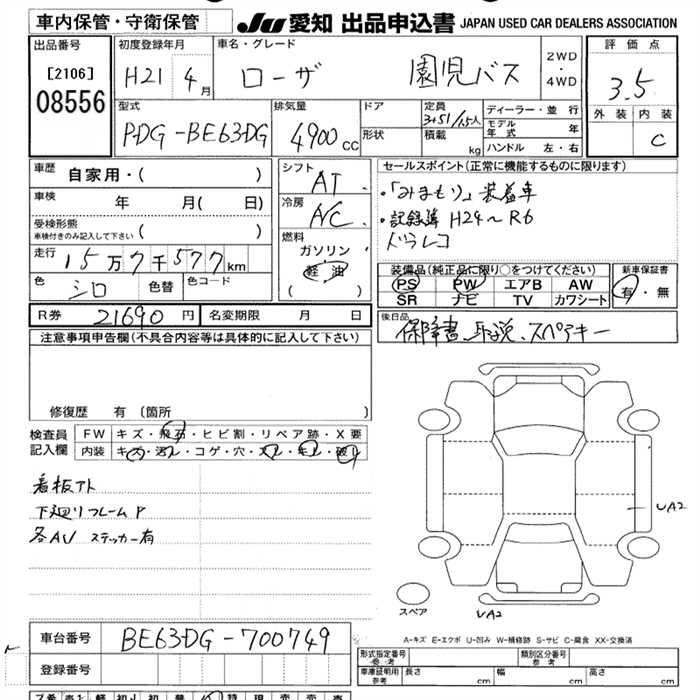 車内保管・守衛保管
JU 愛知 出品申込書 JAPAN USED CAR DEALERS ASSOCIATION
出品番号
[2106]
08556
初度登録年月
H21 4月
車名・グレード
ローザ 園児バス
2WD
・
4WD
評価点
3.5
外装 内装
C
型式
PDG-BE63DG
排気量
4900cc
ドア
形状
定員
3+51/1.5人
積載 kg
ディーラー・並行
モデル年式 年
ハンドル 左・右
車歴 自家用・( )
車検 年 月( 日)
受検形態
車検付きのみ記入して下さい ( )
走行 15万7千577km
色 シロ 色替 色コード
シフト
AT
冷房
A/C
燃料
ガソリン
軽油
( )
セールスポイント(正常に機能するものに限ります)
・「みまもり」装着車
・記録簿 H24〜R6
ドラレコ
装備品(純正品に限り○をつけてください)
PS PW エアB AW
SR ナビ TV カワシート
新車保証書
有・無
R券 21690円 名変期限 月 日
後日品
保障書、取説、スペアキー
注意事項申告欄(不具合内容等は具体的に記入して下さい)
修復歴 有 〔箇所 〕
検査員
記入欄
FW キズ・飛石・ヒビ割・リペア跡・X要
内装 キズ・汚レ・コゲ・穴・スレ・キレ・破レ
看板アト
下廻リフレームP
各AU ステッカー有
UA2
UA2
スペア
A-キズ E-エクボ U-凹み W-補修跡 S-サビ C-腐食 XX-交換済
車台番号 BE63DG-700749
登録番号
形式指定番号
参考
類別区分番号
参考
車庫証明用
参考
長さ cm 幅 cm 高さ cm